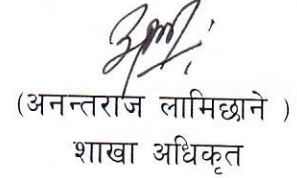 (अनन्तराज लामिछाने )
शाखा अधिकृत